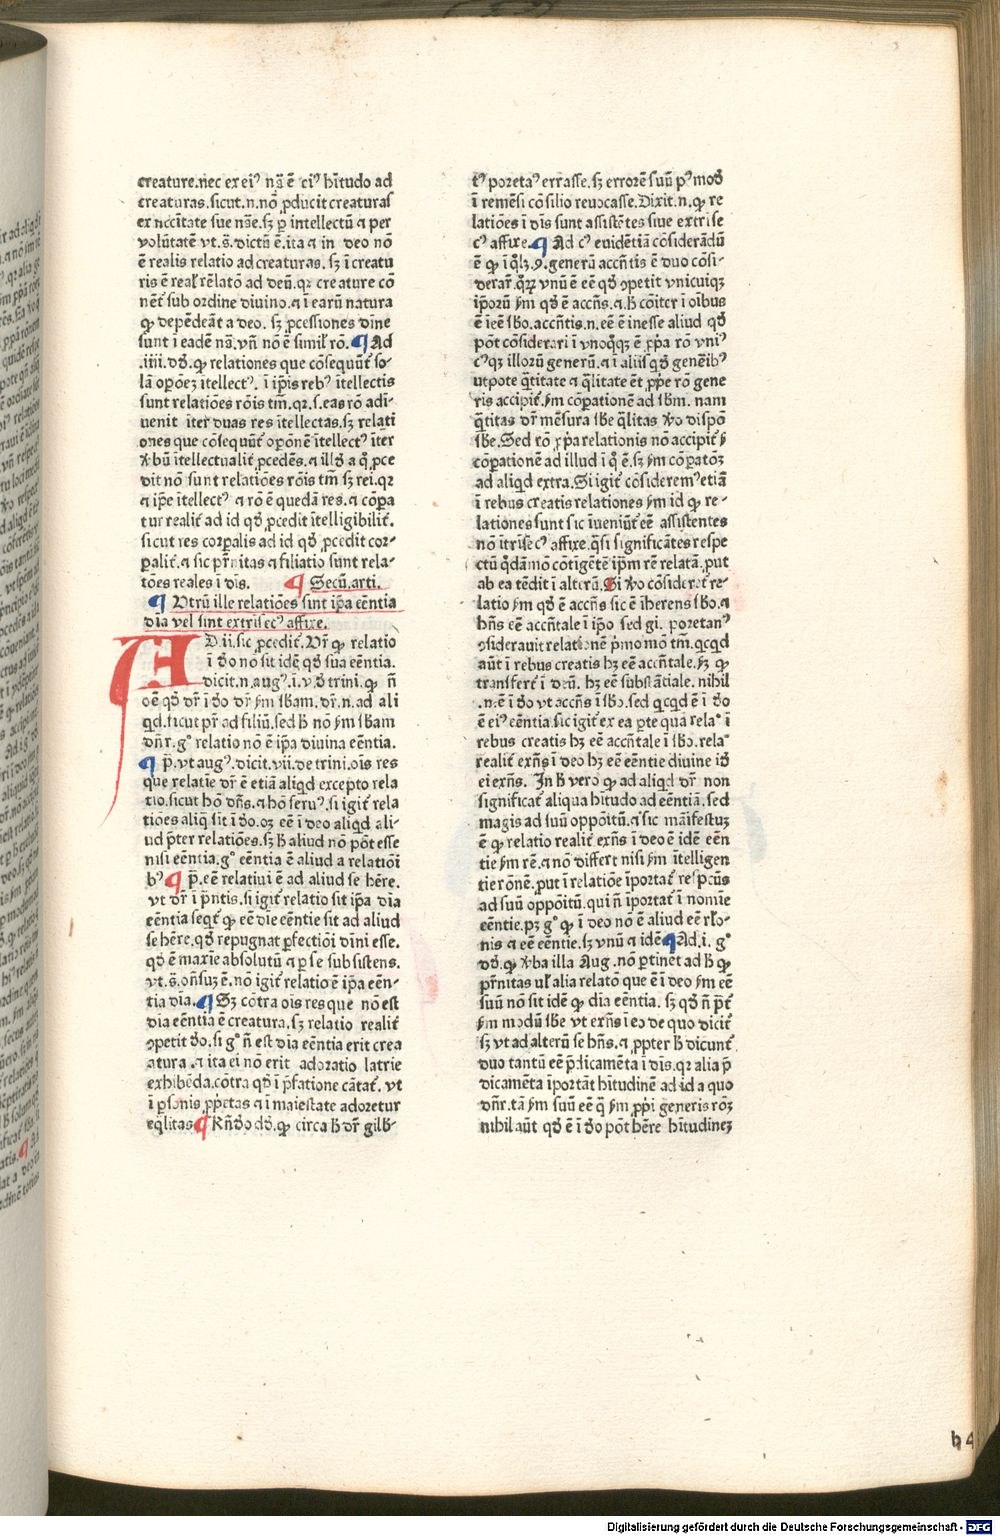 creature.nec ex eiꝰ nā ē eiꝰ hītudo ad
creaturas.sicut.n.nō ꝓducit creaturas
ex nccītate sue nāe.sꝫ ꝑ intellectū ⁊ per
volūtatē vt.ṡ.dictū ē.ita ⁊ in deo nō
ē realis relatio ad creaturas.sꝫ ī creatu
ris ē real̓ relatō ad deū.qꝛ creature cō
nēt̄ sub ordine diuino.⁊ ī earū natura
ꝙ depēdeāt a deo. sꝫ ꝓcessiones dīne
sunt ī eadē nā.vñ nō ē simil̓ rō. ¶ Ad
.iiii.dō.ꝙ relationes que cōsequūt̄ so-
lā opōeꝫ ītellectꝰ. ī ip̄is rebꝰ ītellectis
sunt relatiōes rōis tm̄.qꝛ.s.eas rō adī-
uenit īter duas res ītellectas.sꝫ relati
ones que cōsequūt̄ opōnē ītellectꝰ īter
v̄bū ītellectualit̄ ꝓcedēs.⁊ illd̄ a q̊ ꝓce
dit nō sunt relatiōes rōis tm̄ sꝫ rei.qꝛ
⁊ ip̄e ītellectꝰ ⁊ rō ē quedā res.⁊ cōꝑa
tur realit̄ ad id qd̄ ꝓcedit ītelligibilit̄.
sicut res corꝑalis ad id qd̄ ꝓcedit cor-
ꝑalit̄.⁊ sic pr̄nitas ⁊ filiatio sunt rela-
tōes reales ī dīs. ¶ Secū.arti.
¶ Utrū ille relatiōes sint ip̄a eēntia
dīa vel sint extrīsecꝰ affixe.
AD.ii.sic ꝓcedit̄.Ur̄ ꝙ relatio
ī dō no sit idē qd̄ sua eēntia.
dicit.n.augꝰ.ī.v.d̄ trini.ꝙ ñ
oē qd̄ dr̄ ī dō dr̄ ẜm sb̄am.dr̄.n.ad ali
qd.sicut pr̄ ad filiū.sed h̄ nō ẜm sb̄am
dn̄r.gͦ relatio nō ē ip̄a diuina eēntia.
¶ p̄.vt augꝰ.dicit.vii.de trini.ois res
que relatīe dr̄ ē etiā aliqd excepto rela
tio.sicut hō dn̄s.⁊ hō seruꝰ.si igit̄ rela
tiōes aliq̄ sit ī dō.oꝫ eē ī deo aliqd ali-
ud p̄ter relatiōes.sꝫ h̄ aliud nō pōt esse
nisi eēntia.gͦ eēntia ē aliud a relatiōī
bꝰ ¶ p̄.eē relatiui ē ad aliud se hēre.
vt dr̄ ī p̄ntis.si igit̄ relatio sit ip̄a dīa
eēntia seqt̄ ꝙ eē dīe eēntie sit ad aliud
se hēre.qd̄ repugnat ꝑfectiōi dīni esse.
qd̄ ē maxīe absolutū ⁊ ꝑ se subsistens.
vt.ṡ.onsuꝫ ē.nō igit̄ relatio ē ip̄a eēn-
tia dīa. ¶ Sꝫ cōtra ois res que nō est
dīa eēntia ē creatura.sꝫ relatio realit̄
ꝯpetit dō.si gͦ ñ est dīa eēntia erit crea
atura.⁊ ita ei nō erit adoratio latrie
exhibēda.cōtra qd̄ ī p̄fatione cātat̄. vt
ī ꝑsonis ꝓp̄etas ⁊ ī maiestate adoretur
eq̄litas ¶ Rn̄dō dō.ꝙ circa h̄ dr̄ gilb-
tꝰ poretaꝰ errasse.sꝫ errorē suū pꝰmod̄
ī remēsi cōsilio reuocasse.Dixit.n.ꝙ re
latiōes ī dīs sunt assistētes siue extrīse
cꝰ affixe. ¶ Ad cꝰ euidētiā cōsiderādū
ē ꝙ ī q̊lꝫ.9.generū accn̄tis ē duo cōsi-
derar̄.qꝝ vnū ē eē qd̄ ꝯpetit vnicuiqꝫ
ip̄orū ẜm qd̄ ē accn̄s.⁊ h̄ cōiter ī oībus
ē īeē sb̄o.accn̄tis.n.eē ē inesse aliud qd̄
pōt cōsiderari ī vnoq̄qꝫ ē ꝓpa rō vniꝰ
cꝰqꝫ illorū generū.⁊ ī aliis q̄d̄ genēibꝰ
utpote q̄titate ⁊ q̄litate ēt ꝓp̄e rō gene
ris accipit̄.ẜm cōꝑationē ad sb̄m. nam
q̄titas dr̄ mēsura sb̄e q̄litas v̄o dispō
sb̄e.Sed rō ꝓp̄a relationis nō accipit̄ ẜ
cōꝑationē ad illud ī q̊ ē.sꝫ ẜm cōꝑatōꝫ
ad aliqd extra.Si igit̄ cōsideremꝰ etiā
ī rebus creatis relationes ẜm id ꝙ re-
lationes sunt sic īueniūt̄ eē assistentes
nō ītrīsecꝰ affixe.q̄si significātes respe
ctū q̊dāmō cōtīgētē ip̄m rē relatā.ꝓut
ab ea tēdit ī alterū.Si v̄o cōsideret̄ re-
latio ẜm qd̄ ē accn̄s sic ē īherens sb̄o.⁊
hn̄s eē accn̄tale ī ip̄o sed gi. poretanꝰ
ꝯsiderauit relationē p̄mo mō tm̄.qcqd
aūt ī rebus creatis hꝫ eē accn̄tale.ẜm ꝙ
transfert̄ ī deū. hꝫ eē substātiale. nihil
.n.ē ī dō vt accn̄s ī sb̄o.sed qcqd ē ī dō
ē eiꝰ eēntia.sic igit̄ ex ea ꝑte qua relaͦ ī
rebus creatis hꝫ eē accn̄tale ī sb̄o.relaͦ
realit̄ exn̄s ī deo hꝫ eē eēntie diuine id̄
ei exn̄s. In h̄ vero ꝙ ad aliqd dr̄ non
significat̄ aliqua hītudo ad eēntiā.sed
magis ad suū oppōitū.⁊ sic māifestuꝫ
ē ꝙ relatio realit̄ exn̄s ī deo ē idē eēn
tie ẜm rē.⁊ nō differt nisi ẜm ītelligen
tie rōnē.ꝓut ī relatiōe īportat̄ respcūs
ad suū oppōitū.qui ñ īportat̄ ī nomīe
eēntie.pꝫ gͦ ꝙ ī deo nō ē aliud eē rl̄o-
nis ⁊ eē eēntie.sꝫ vnū ⁊ idē ¶ Ad.i. gͦ
dō.ꝙ v̄ba illa Aug.nō ꝑtinēt ad h̄ ꝙ
pr̄nitas ul̓ alia relatō que ē ī deo ẜm eē
suū nō sit idē ꝙ dīa eēntia. sꝫ qd̄ ñ p̄t̄
ẜm modū sb̄e vt exn̄s ī eo de quo dicit̄
sꝫ vt ad alterū se hn̄s.⁊ ꝓpter h̄ dicunt̄
duo tantū eē p̄dicamēta ī dīs.qꝛ alia p̄
dicamēta īportāt hītudinē ad id a quo
dn̄r.tā ẜm suū eē q̄ ẜm ꝓp̄i generis rōꝫ
nihil aūt qd̄ ē ī dō pōt hēre hītudineꝫ
b 4
Digitalisierung gefördert durch die Deutsche Forschungsgemeinschaft - DFG